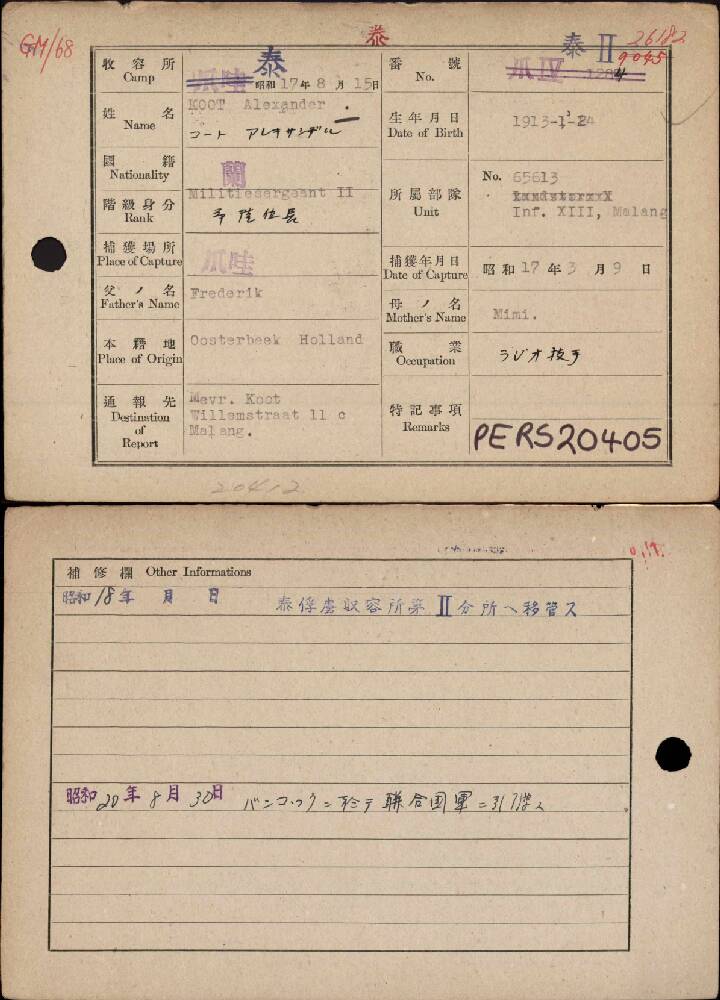 GM/68
泰
泰
泰 II
26182
9045
收容所
Camp
爪哇 昭和 17年 8月 15日
番號
No.
爪 IV 1284
姓名
Name
KOOT Alexander
コート アレキサンデル
生年月日
Date of Birth
1913-1-24
國籍
Nationality
蘭
階級身分
Rank
Militiesergeant II
所屬部隊
Unit
No. 65613
Inf. XIII, Malang
捕獲場所
Place of Capture
爪哇
捕獲年月日
Date of Capture
昭和 17 年 3 月 9 日
父ノ名
Father's Name
Frederik
母ノ名
Mother's Name
Mimi.
本籍地
Place of Origin
Oosterbeek Holland
職業
Occupation
ラジオ技手
通報先
Destination of Report
Mevr. Koot
Willemstraat 11 c
Malang.
特記事項
Remarks
PERS20405
20412
補修欄 Other Informations
昭和 18年 月 日 泰俘虜収容所第 II 分所ヘ移管ス
昭和 20年 8月 30日 バンコックニ於テ聯合国軍ニ引渡ス